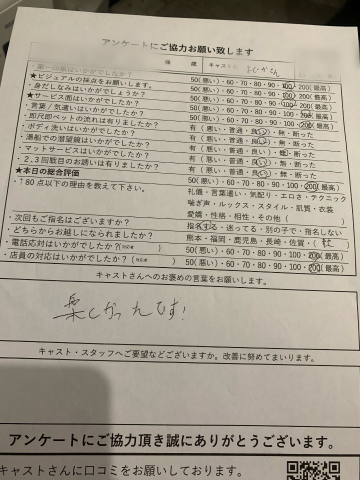 アンケートにご協力お願い致します
様 歳 キャスト さん
・第一印象はいかがでしたか? 50(悪い)・60・70・80・90・100・200(最高)
★ビジュアルの採点をお願いします。 50(悪い)・60・70・80・90・100・200(最高)
・身だしなみはいかがでしょうか? 50(悪い)・60・70・80・90・100・200(最高)
★サービス面はいかがですか? 50(悪い)・60・70・80・90・100・200(最高)
・言葉/気遣いはいかがですか? 50(悪い)・60・70・80・90・100・200(最高)
・即尺即ベットの流れは有りましたか? 有(悪い・普通・良い)・無・断った
・ボディ洗いはいかがですか? 有(悪い・普通・良い)・無・断った
・湯船での潜望鏡はいかがですか? 有(悪い・普通・良い)・無・断った
・マットサービスはいかがですか? 有(悪い・普通・良い)・無・断った
・2,3回戦目のお誘いは有りましたか? 有(悪い・普通・良い)・無・断った
★本日の総合評価 50(悪い)・60・70・80・90・100・200(最高)
*180点以下の理由を教えて下さい。 礼儀・言葉遣い・気配り・エロさ・テクニック
喘ぎ声・ルックス・スタイル・肌質・衣装
愛嬌・性格・相性・その他( )
・次回もご指名はございますか? 指名する・迷ってる・別の子で・指名しない
・どちらからお越しになられましたか? 熊本・福岡・鹿児島・長崎・佐賀・( )
・電話応対はいかがでしたか?( ) 50(悪い)・60・70・80・90・100・200(最高)
・店員の対応はいかがですか?( ) 50(悪い)・60・70・80・90・100・200(最高)
キャストさんへのお褒めの言葉をお願いします。
楽しかったです!
キャスト・スタッフへご要望などございますか。改善に努めてまいります。
アンケートにご協力頂き誠にありがとうございます。
キャストさんに口コミをお願いしております。